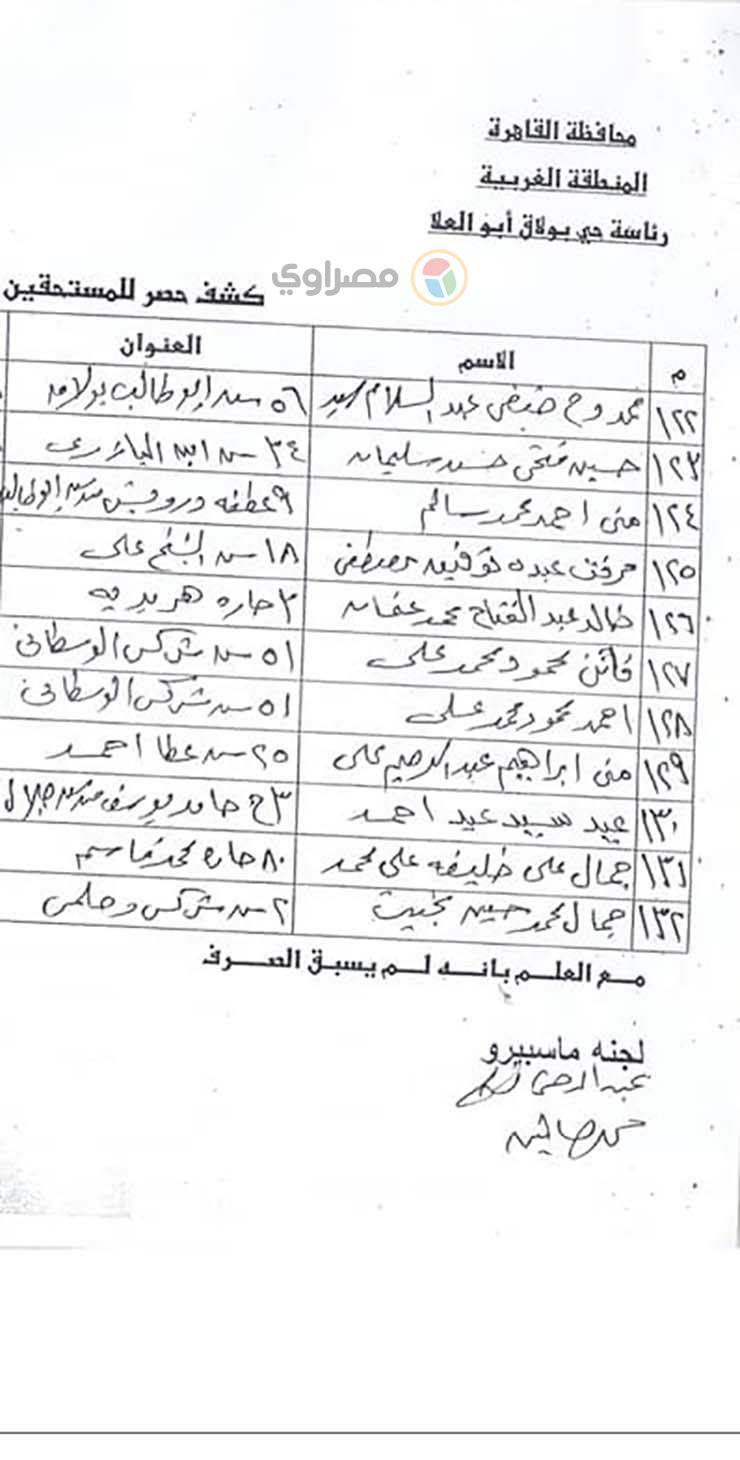 محافظة القاهرة
المنطقة الغربية
رئاسة حي بولاق أبو العلا
مصراوي
كشف حصر للمستحقين
م الاسم العنوان
١٢٢ ممدوح حنفى عبد السلام سيد ٥٦ ش ابو طالب بولاق
١٢٣ حسين فتحى حسن سليمان ٣٤ ش ابن
١٢٤ منى احمد محمد سالم ٩ عطفه درويش من ش ابو طالب
١٢٥ مرفت عبده توفيق مصطفى ١٨ ش الشيخ على
١٢٦ خالد عبد الفتاح محمد عفان ٣ حاره هريديه
١٢٧ فاتن محمود محمد على ٥١ ش شركس الوسطانى
١٢٨ احمد محمود محمد على ٥١ ش شركس الوسطانى
١٢٩ منى ابراهيم عبد الرحيم على ٢٥ ش عطا احمد
١٣٠ عيد سيد عيد احمد ٣ ح حامد يوسف من ش جلال
١٣١ جمال على خليفه على محمد ٨٠ حاره محمد قاسم
١٣٢ جمال محمد حسين بخيت ٢ ش شركس وحلمى
مع العلم بانه لم يسبق الصرف
لجنه ماسبيرو